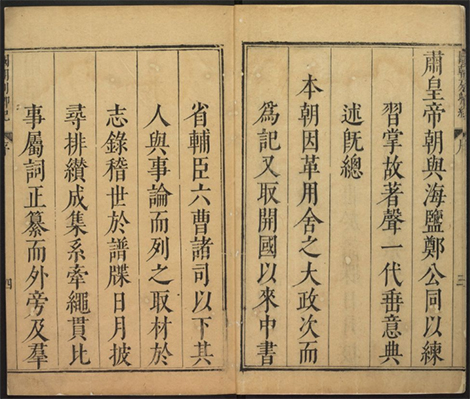 肅皇帝朝與海鹽鄭公同以練
習掌故著聲一代垂意典
述旣總
本朝因革用舍之大政次而
爲記又取開國以來中書
省輔臣六曹諸司以下其
人與事論而列之取材於
志錄稽世於譜牒日月披
尋排纘成集系牽繩貫比
事屬詞正纂而外旁及羣
序
四